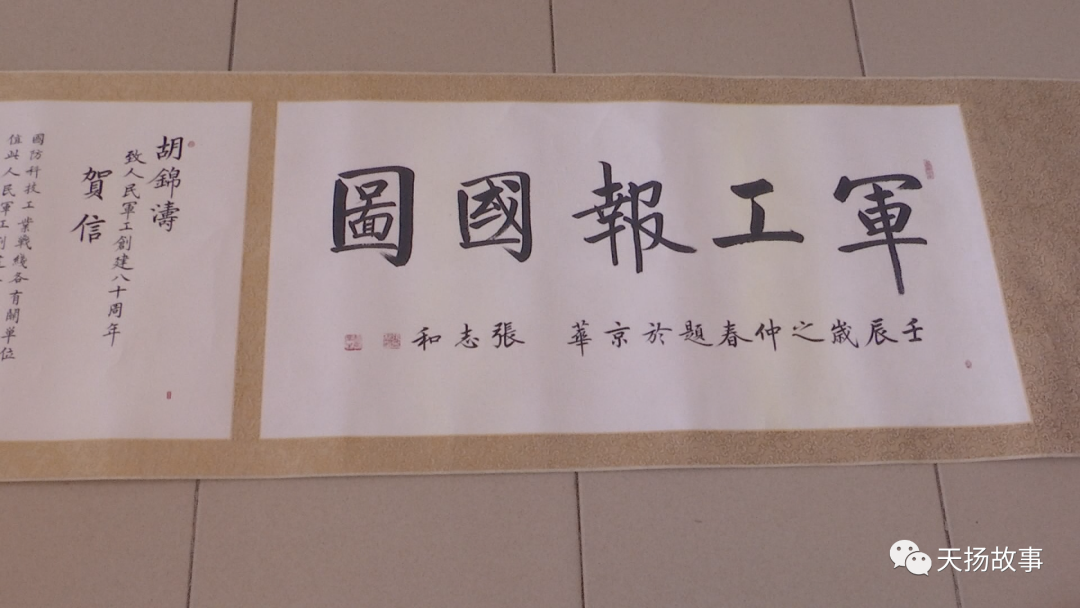 軍工報國圖
壬辰歲之仲春題於京華 張志和
胡錦濤
致人民軍工創建八十周年
賀信
國防科技工業戰綫各有關單位
值此人民軍工創建
天扬故事